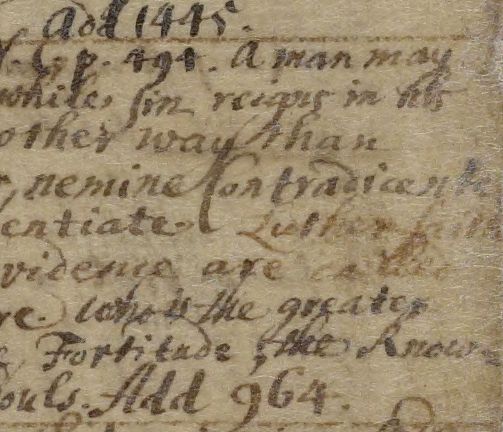 Add 1445.
p. 494. A man may
while sin reigns in his
other way than
nemine Contradicente
entiate. Luther saith
vidence are called
re. who is the greater
Fortitude, the Know
ouls. Add 964.